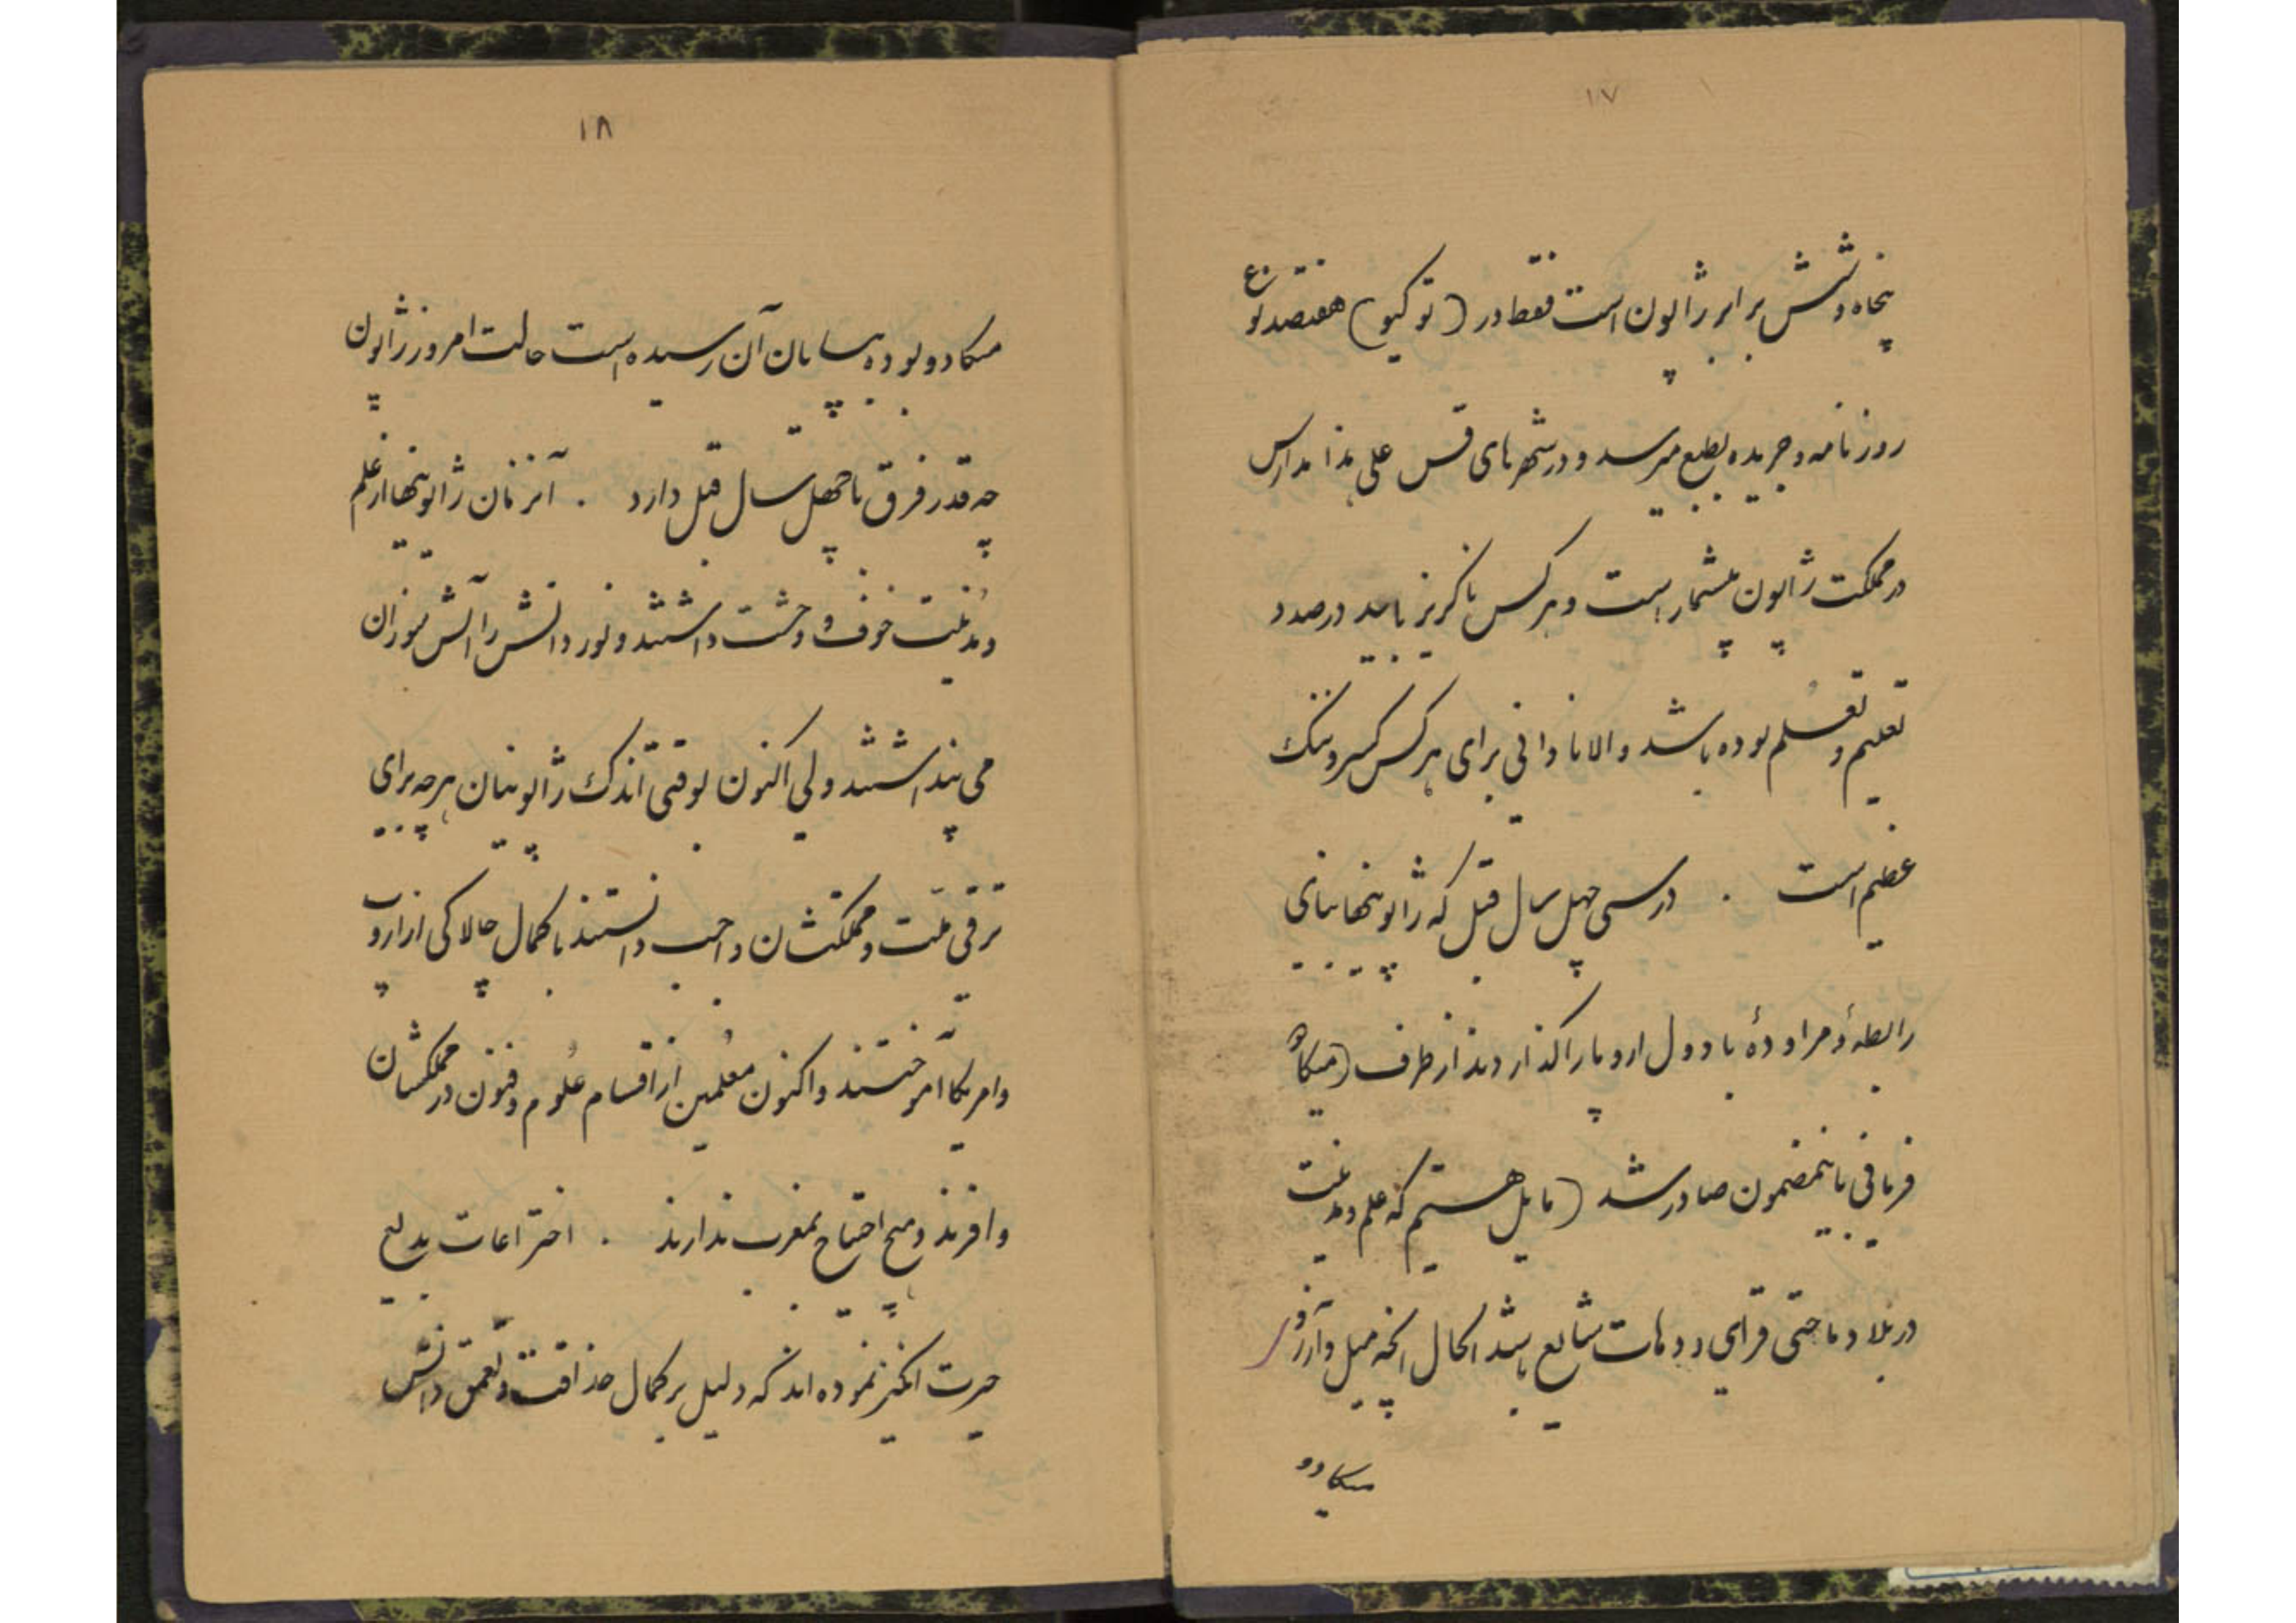 ۱۷
پنجاه و شش برابر ژاپون است فقط در (توکیو) هفتصد نوع
روزنامه و جریده بطبع میرسد و در شهرهای قس علی هذا مدارس
در مملکت ژاپون بیشمار است و هر کس ناگریز باید در صدد
تعلیم و تعلّم بوده باشد و الا نادانی برای هر کس کسر و ننگ
عظیم است . در سی چهل سال قبل که ژاپونیها بنای
رابطهٔ و مراودهٔ با دول اروپا را گذاردند از طرف (میکادو)
فرمانی باینمضمون صادر شد (مایل هستیم که علم و مدنیت
در بلاد ما حتی قرای و دهات شایع باشد الحال آنچه میل و آرزوی
میکادو
۱۸
میکادو بوده بپایان آن رسیده است حالت امروز ژاپون
چه قدر فرق با چهل سال قبل دارد . آنزمان ژاپونیها از علم
و مدنیت خوف و وحشت داشتند و نور دانش را آتش سوزان
می پنداشتند ولی اکنون بوقتی اندک ژاپونیان هر چه برای
ترقی ملّت و مملکتشان واجب دانستند با کمال چالاکی از اروپ
و امریکا آموختند و اکنون معُلمین از اقسام عُلوم و فنون در مملکتشان
وافرند و هیچ احتیاج بمغرب ندارند . اختراعات بدیع
حیرت انگیز نموده اند که دلیل بر کمال حذاقت و تعمق دانش